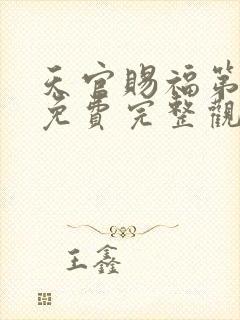 天官賜福第
免費完整觀
王鑫